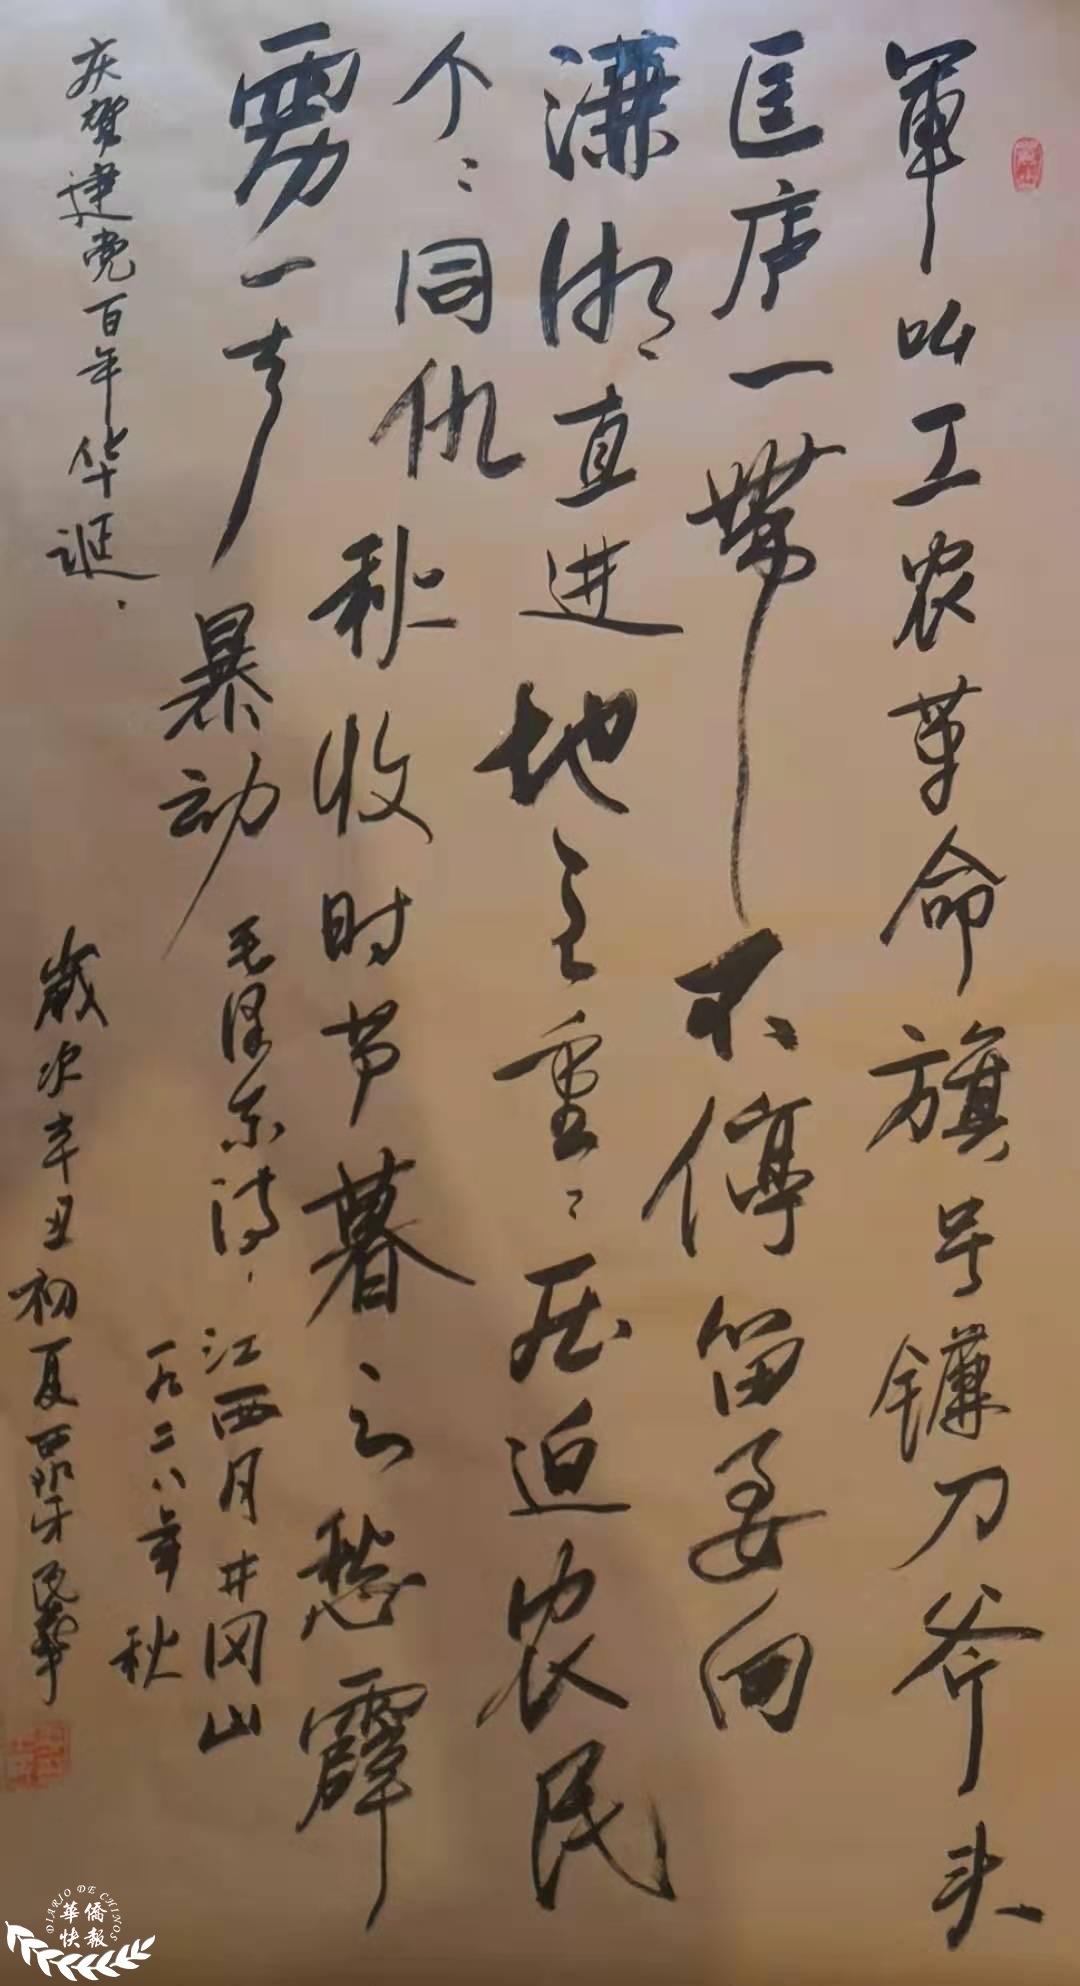 军叫工农革命旗号镰刀斧头
匡庐一带不停留要向
潇湘直进地主重々压迫农民
个々同仇秋收时节暮云愁霹
雳一声暴动 毛泽东诗
江西月井冈山
一九二八年秋
庆贺建党百年华诞
歲次辛丑初夏西班牙
DIARIO DE CHINOS
華僑
快報